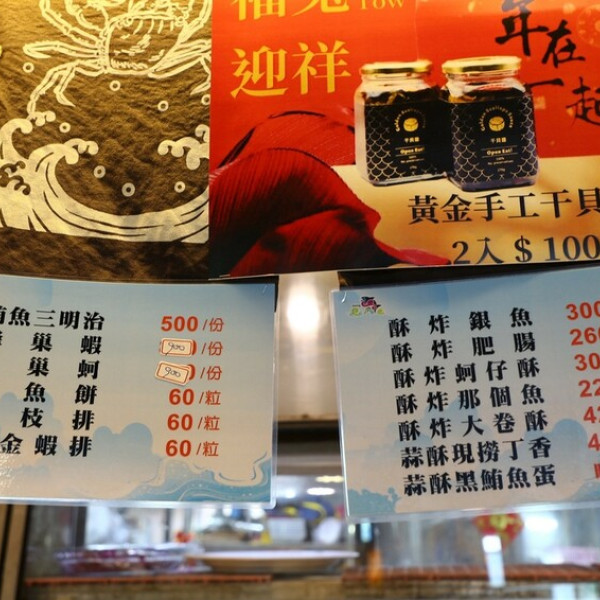 福兔
迎祥
年在
一起
Open Eat!
Open Eat!
黃金手工干貝
2入 $ 100
鮪魚三明治 500/份
巢蝦 900/份
巢蚵 900/份
魚餅 60/粒
枝排 60/粒
金蝦排 60/粒
酥炸銀魚 300
酥炸肥腸 260
酥炸蚵仔酥 30
酥炸那個魚 22
酥炸大卷酥 42
蒜酥現撈丁香 4
蒜酥黑鮪魚蛋